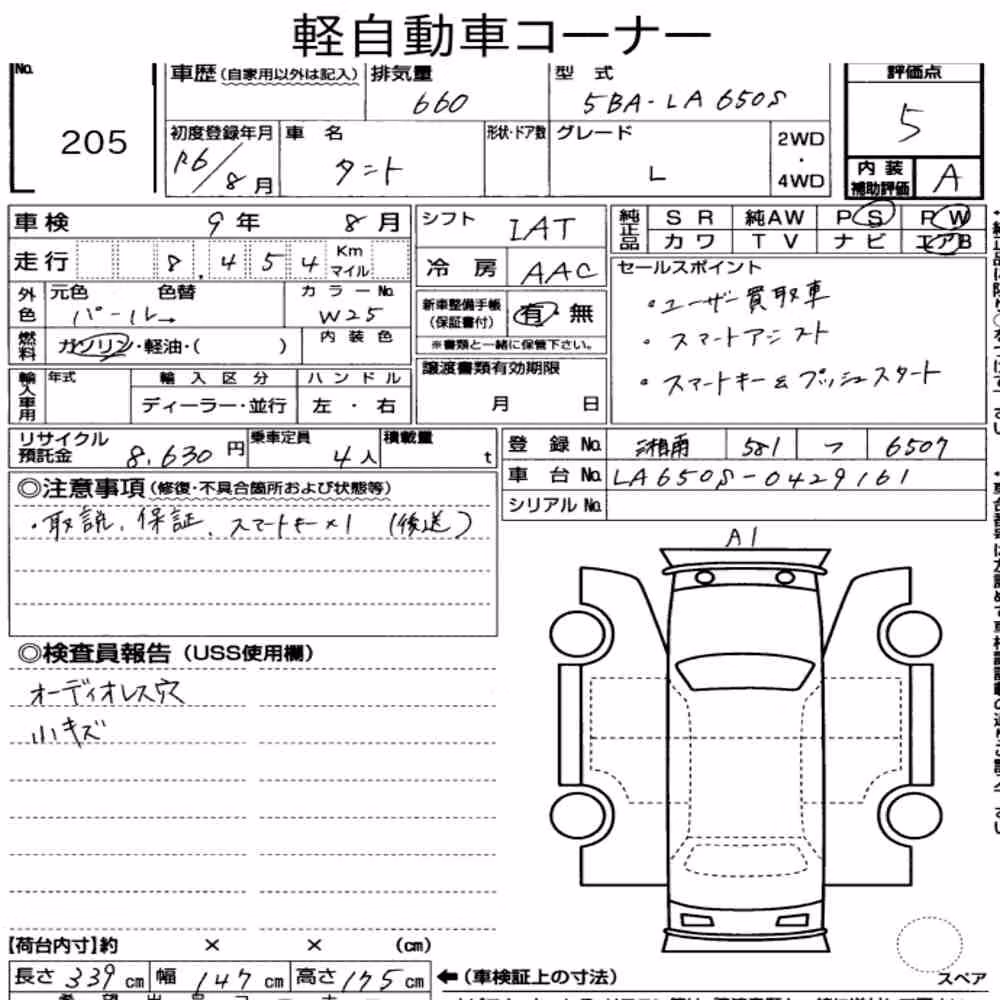 軽自動車コーナー
No. 205
車歴 (自家用以外は記入) 排気量 660 型式 5BA-LA650S 評価点 5
初度登録年月 R6/8月 車名 タント 形状・ドア数 グレード L 2WD・4WD 内装補助評価 A
車検 9年 8月 シフト IAT 純正品 SR 純AW PS PW
カワ TV ナビ エアB
走行 8,454 Km マイル 冷房 AAC
セールスポイント
・ユーザー買取車
・スマートアシスト
・スマートキー&プッシュスタート
外色 元色 パール 色替 カラーNo. W25
新車整備手帳 (保証書付) 有・無
※書類と一緒に保管下さい。
燃料 ガソリン・軽油・( ) 内装色
譲渡書類有効期限 月 日
輸入車用 年式 輸入区分 ハンドル
ディーラー・並行 左・右
リサイクル預託金 8,630円 乗車定員 4人 積載量 t
登録No. 湘南 581 つ 6507
車台No. LA650S-0429161
シリアルNo.
◎注意事項 (修復・不具合箇所および状態等)
・取説、保証、スマートキー×1 (後送)
A1
◎検査員報告 (USS使用欄)
オーディオレス穴
小キズ
【荷台内寸】約 × × (cm)
長さ 339cm 幅 147cm 高さ 175cm ←(車検証上の寸法) スペア